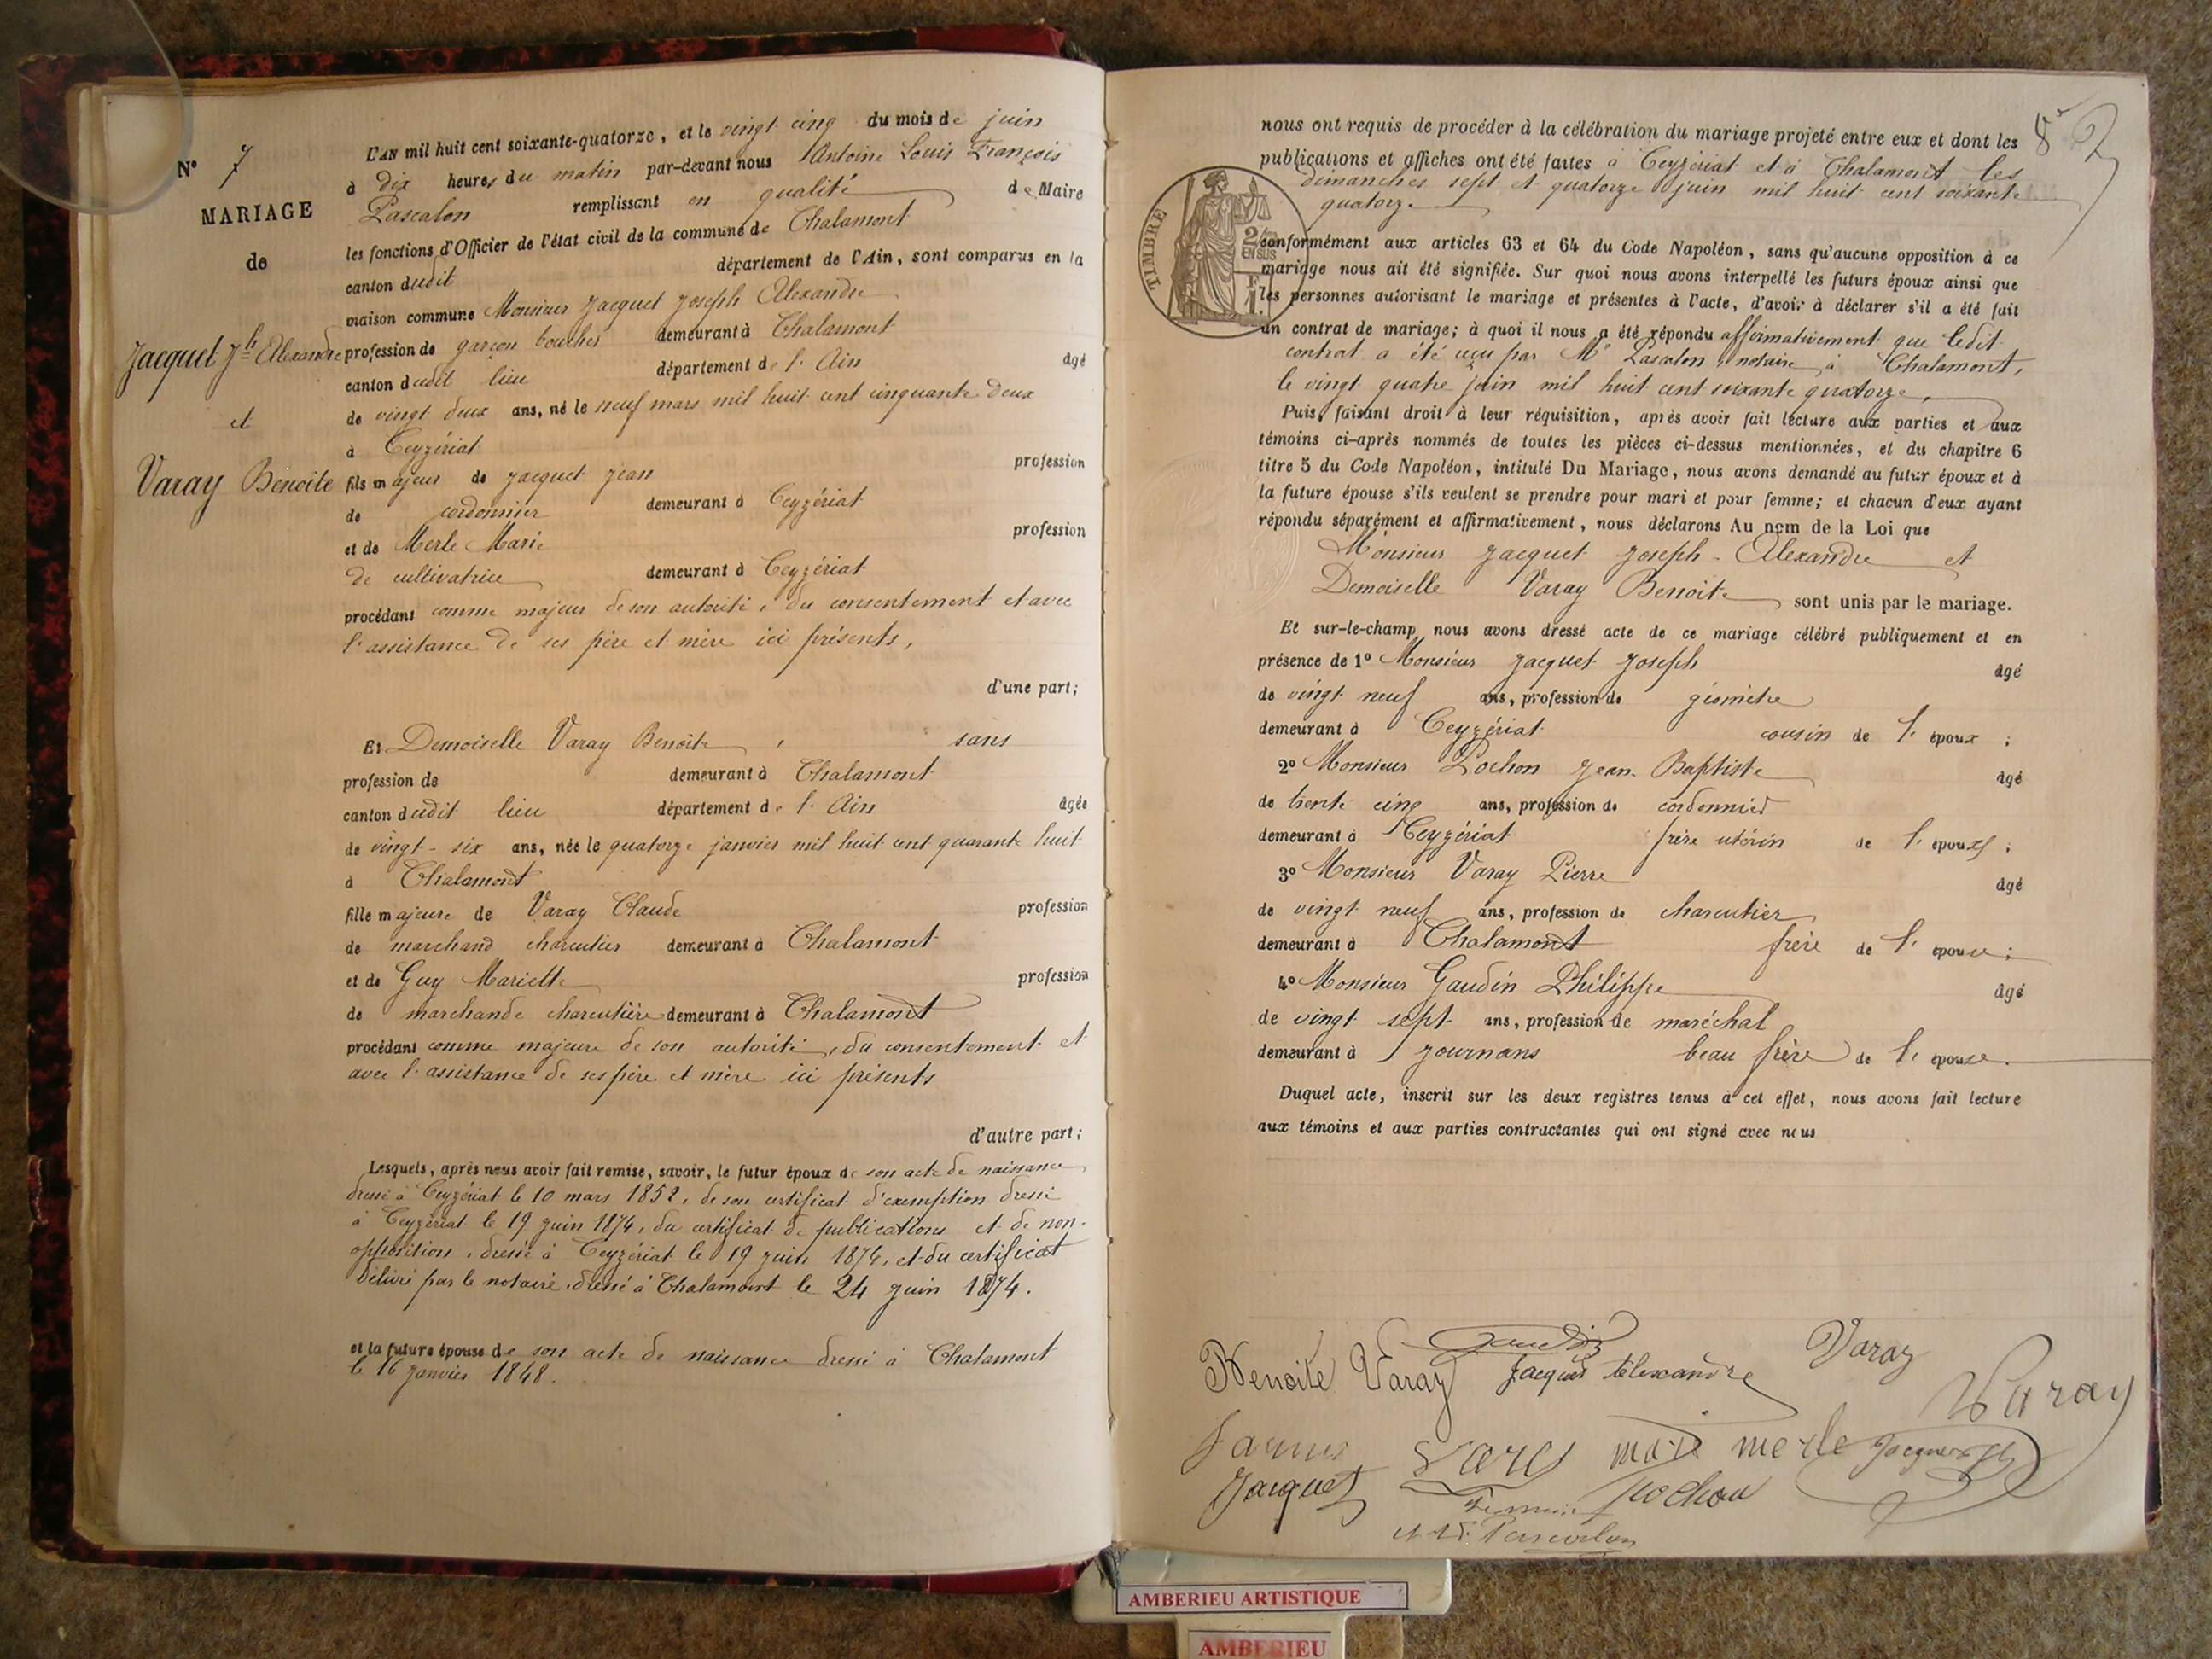 N° 7
MARIAGE
de
Jacquet Jh Alexandre
et
Varay Benoite
L'AN mil huit cent soixante-quatorze, et le vingt cinq du mois de juin
à dix heures du matin par-devant nous Antoine Louis François
Pascalon remplissant en qualité de Maire
les fonctions d'Officier de l'état civil de la commune de Chalamont
canton dudit département de l'Ain, sont comparus en la
maison commune Monsieur Jacquet Joseph Alexandre
profession de garçon boucher demeurant à Chalamont
canton dudit lieu département de l'Ain âgé
de vingt deux ans, né le neuf mars mil huit cent cinquante deux
à Ceyzériat
fils majeur de Jacquet Jean profession
de cordonnier demeurant à Ceyzériat
et de Merle Marie profession
de cultivatrice demeurant à Ceyzériat
procédant comme majeur de son autorité, du consentement et avec
l'assistance de ses père et mère ici présents,
d'une part;
Et Demoiselle Varay Benoite, sans
profession de demeurant à Chalamont
canton dudit lieu département de l'Ain âgée
de vingt-six ans, née le quatorze janvier mil huit cent quarante huit
à Chalamont
fille majeure de Varay Claude profession
de marchand charcutier demeurant à Chalamont
et de Guy Mariette profession
de marchande charcutière demeurant à Chalamont
procédant comme majeure de son autorité, du consentement et
avec l'assistance de ses père et mère ici présents
d'autre part;
Lesquels, après nous avoir fait remise, savoir, le futur époux de son acte de naissance
dressé à Ceyzériat le 10 mars 1852, de son certificat d'exemption dressé
à Ceyzériat le 19 juin 1874, du certificat de publications et de non-
opposition, dressé à Ceyzériat le 19 juin 1874, et du certificat
délivré par le notaire, dressé à Chalamont le 24 juin 1874.
et la future épouse de son acte de naissance dressé à Chalamont
le 16 janvier 1848.
8e
nous ont requis de procéder à la célébration du mariage projeté entre eux et dont les
publications et affiches ont été faites à Ceyzériat et à Chalamont les
dimanches sept et quatorze juin mil huit cent soixante
quatorze
TIMBRE
2/10 EN SUS
conformément aux articles 63 et 64 du Code Napoléon, sans qu'aucune opposition à ce
mariage nous ait été signifiée. Sur quoi nous avons interpellé les futurs époux ainsi que
les personnes autorisant le mariage et présentes à l'acte, d'avoir à déclarer s'il a été fait
un contrat de mariage; à quoi il nous a été répondu affirmativement que ledit
contrat a été reçu par Me Pascalon, notaire à Chalamont,
le vingt quatre juin mil huit cent soixante quatorze,
Puis, faisant droit à leur réquisition, après avoir fait lecture aux parties et aux
témoins ci-après nommés de toutes les pièces ci-dessus mentionnées, et du chapitre 6
titre 5 du Code Napoléon, intitulé Du Mariage, nous avons demandé au futur époux et à
la future épouse s'ils veulent se prendre pour mari et pour femme; et chacun d'eux ayant
répondu séparément et affirmativement, nous déclarons Au nom de la Loi que
Monsieur Jacquet Joseph-Alexandre et
Demoiselle Varay Benoite sont unis par le mariage.
Et sur-le-champ nous avons dressé acte de ce mariage célébré publiquement et en
présence de 1° Monsieur Jacquet Joseph âgé
de vingt neuf ans, profession de géomètre
demeurant à Ceyzériat cousin de l'époux;
2° Monsieur Pochon Jean-Baptiste âgé
de trente cinq ans, profession de cordonnier
demeurant à Ceyzériat frère utérin de l'époux;
3° Monsieur Varay Pierre âgé
de vingt neuf ans, profession de charcutier
demeurant à Chalamont frère de l'épouse;
4° Monsieur Gaudin Philippe âgé
de vingt sept ans, profession de maréchal
demeurant à Journans beau frère de l'épouse.
Duquel acte, inscrit sur les deux registres tenus à cet effet, nous avons fait lecture
aux témoins et aux parties contractantes qui ont signé avec nous
Gaudin
Benoite Varay Jacquet Alexandre Varay
Varay
marie merle
Jacquet pochon
Pascalon
AMBERIEU ARTISTIQUE
AMBERIEU